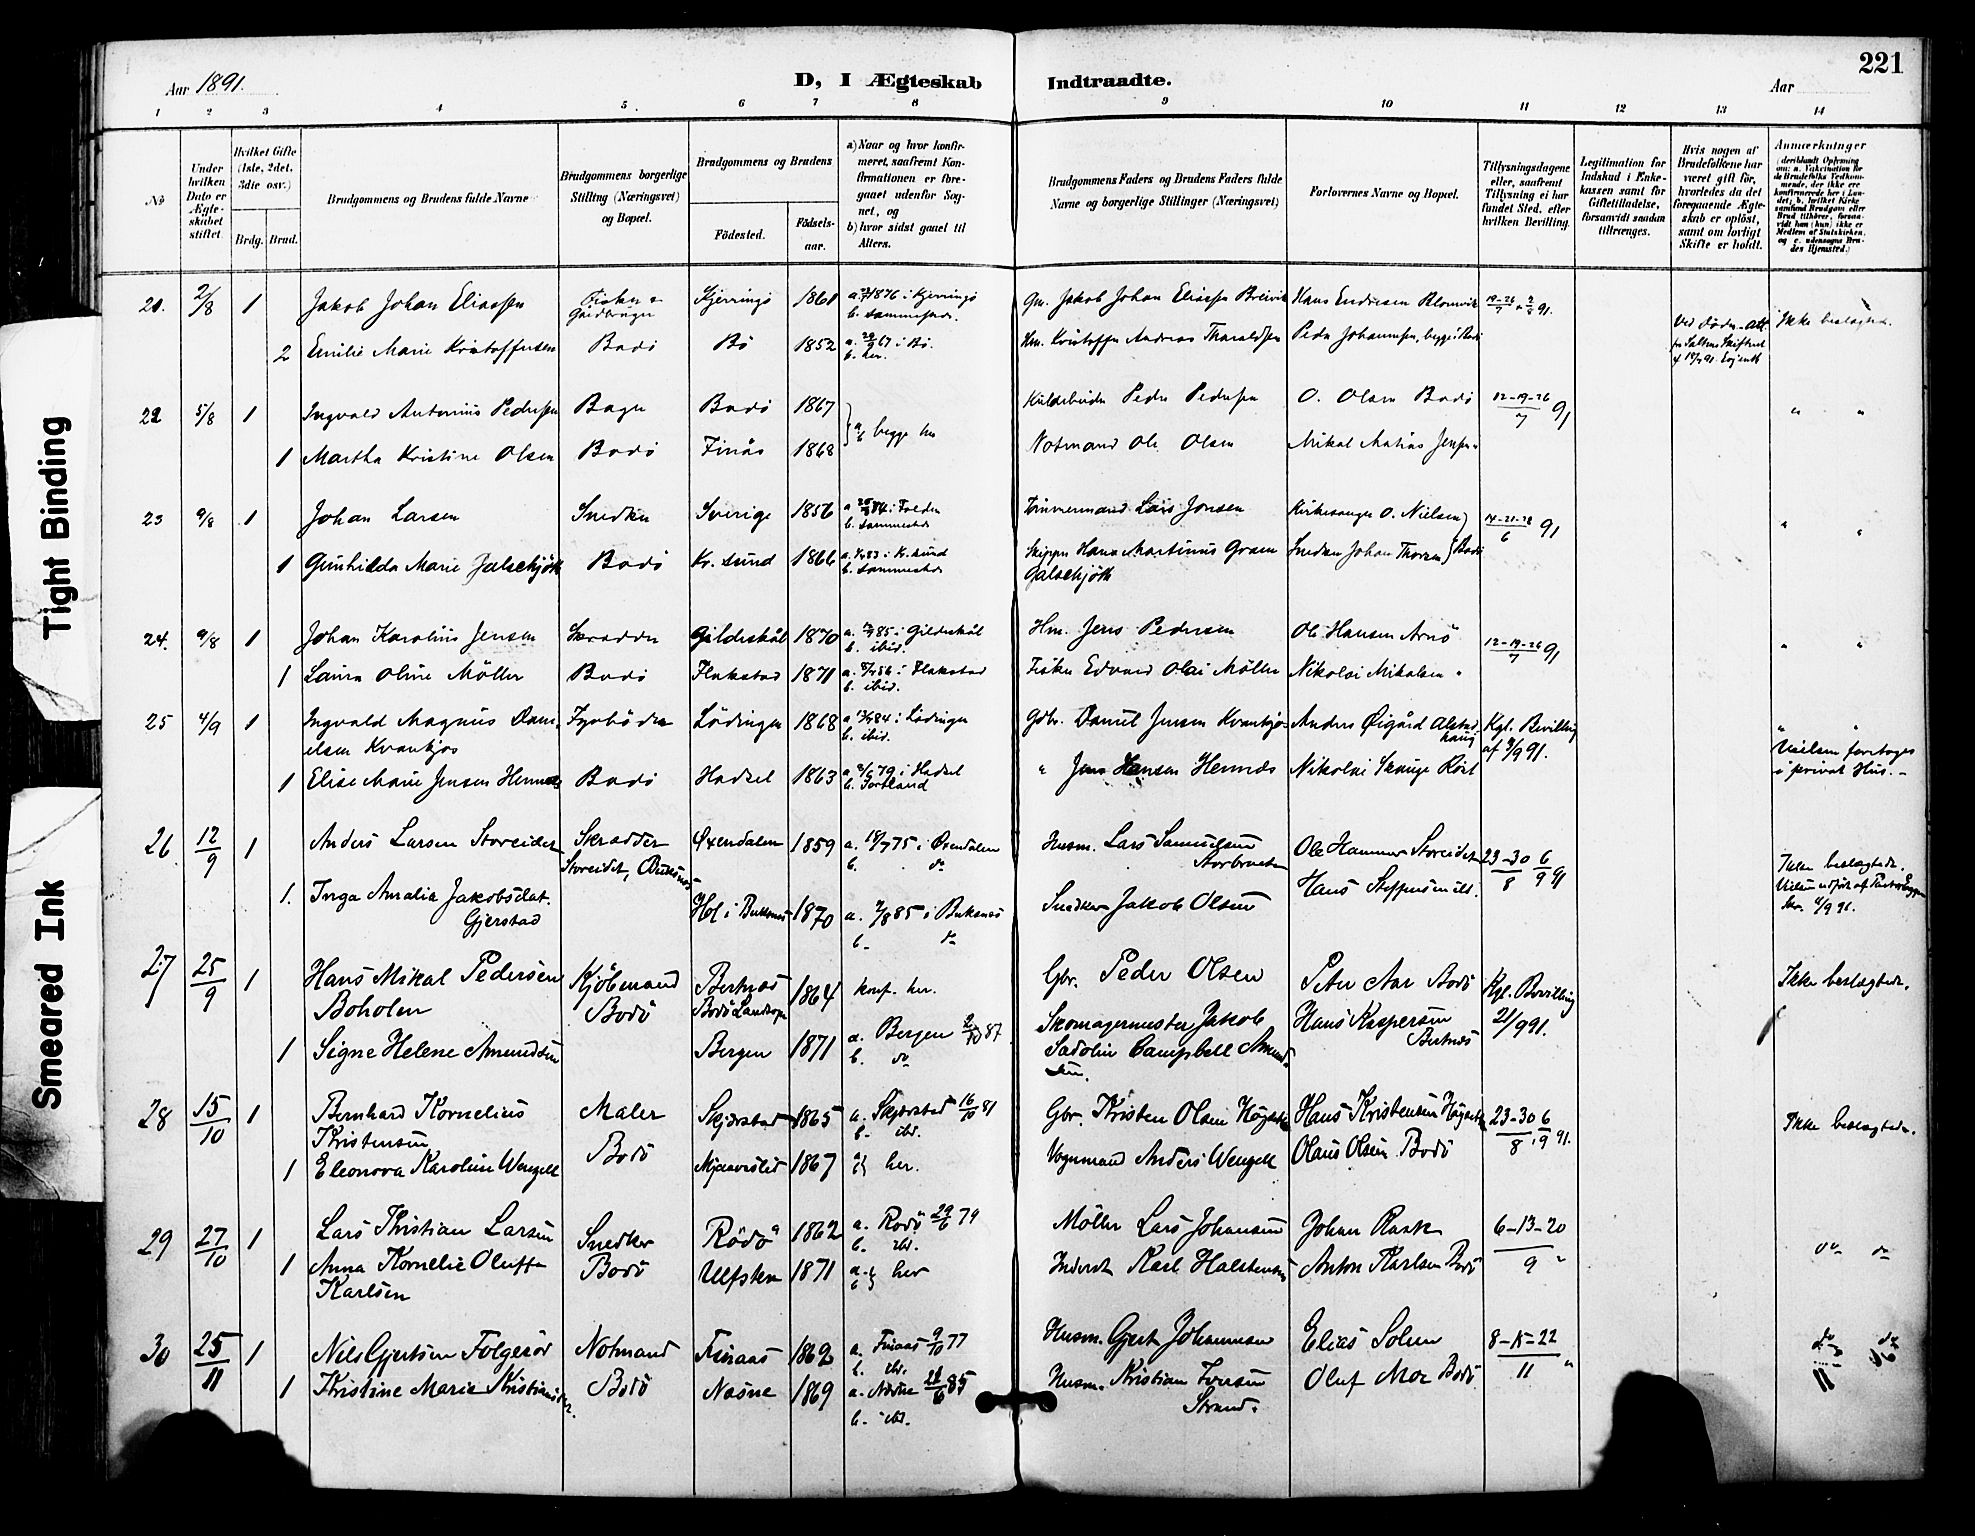 221
Aar 1891.
D, I Ægteskab Indtraadte.
Aar
1 2 3 4 5. 6 7 8 9 10 11 12 13 14
No
Under hvilken Dato er Ægteskabet stiftet.
Hvilket Gifte (1ste, 2det, 3die osv.)
Brdg. Brud.
Brudgommens og Brudens fulde Navne
Brudgommens borgerlige Stilling (Næringsvei) og Bopæl.
Brudgommens og Brudens
Fødested.
Fødselsaar.
a) Naar og hvor konfirmeret, saafremt Konfirmationen er foregaaet udenfor Sognet, og
b) hvor sidst gaaet til Alters.
Brudgommens Faders og Brudens Faders fulde Navne og borgerlige Stillinger (Næringsvei)
Forlovernes Navne og Bopæl.
Tillysningsdagene eller, saafremt Tillysning ei har fundet Sted, efter hvilken Bevilling.
Legitimation for Indskud i Enkekassen samt for Giftetilladelse, forsaavidt saadan tiltrænges.
Hvis nogen af Brudefolkene har været gift før, hvorledes da det foregaaende Ægteskab er opløst, samt om lovligt Skifte er holdt.
Anmærkninger
21. 2/8 1 Jakob Johan Eliassen Kjerringö 1861 a. 1876 i Kjerringö b. sammesteds. Jakob Johan Eliassen Breivik Hans Endresen Blomvik 19-26/7 91. Ikke beslægtede.
2 Emilie Marie Kristoffersen Bodö Bö 1852 67 i Bö. b. her. Kristoffer Andreas Tharaldsen Peder Johannesen, begge i Bodö
22 5/8 1 Ingvald Antonius Pedersen Bager Bodö 1867 a b begge her Peder Pedersen O. Olsen Bodö 12-19-26/7 91 " "
1 Martha Kristine Olsen Bodö Finås 1868 Notmand Ole Olsen Mikal Matias Jensen
23 9/8 1 Johan Larsen Snedker Sverige 1856 84 i Folden b. sammesteds Tømmermand Lars Jonsen Kirkesanger O. Nielsen 14-21-28/6 91 " "
1 Gunhilda Marie Galschjöth Bodö Kr. sund 1866 83 i Kr. sund b. sammesteds Skipper Hans Martinus Gram Galschjöth Snedker Johan Thoresen Bodö
24. 9/8 1 Johan Karolius Jensen Skradder Gildeskål 1870 85 i Gildeskål b. ibid. Hm. Jens Pedersen Ole Hansen Arnö 12-19-26/7 91 " "
1 Laura Oline Möller Bodö Flakstad 1871 a. i Flakstad b. ibid. Fisker Edvard Olai Möller Nikolai Mikalsen "
25 4/9 1 Ingvald Magnus Danielsen Kvankjos Fyrböder Lödingen 1868 84 i Lödingen b. ibid. Gdb. Daniel Jensen Kvankjos Anders Øigård Alstahaug Kgl. Bevilling af 3/9 91.
1 Elise Marie Jensen Hennes Bodö Hadsel 1863 79 i Hadsel b. Sortland " Jens Hansen Hennes Nikolai Skauge Röst Vielsen foretages i privat Hus. -
26 12/9 1 Anders Larsen Storeidet Skrædder Storeidet, Buksnes Øxendalen 1859 a. 18/7 75 i Øxendalen b. do Husm. Lars Samuelsen Storbraaten Ole Hammer Storeidet 23-30/8 6/9 91 Ikke beslægtede.
1. Inga Amalia Jakobsdat. Gjerstad Hol i Buksnes 1870 a. 2/8 85 i Buksnes b. do Snedker Jakob Olsen Hans Steffensen ibd.
27 25/9 1 Hans Mikal Pedersen Boholm Kjöbmand Bodö Bertnes Bodö Landsogn 1864 konf. her. Gbr. Peder Olsen Peter Aar Bodö Kgl. Bevilling 21/9 91. Ikke beslægtede.
1 Signe Helene Amundsen Bergen 1871 a. Bergen 2/10 87. b. do Skomagermester Jakob Sadolin Campbell Amundsen. Hans Kaspersen Bertnes
28 15/10 1 Bernhard Kornelius Kristensen Maler Bodö Skjerstad 1865 a. Skjerstad 16/10 81 b. ibd. Gbr. Kristen Olsen Högset Hans Kristensen Högset 23-30/8 6/9 91. Ikke beslægtede.
1 Eleonora Karoline Wengell 1867 her. Vognmand Anders Wengell Olaus Olsen Bodö
29 27/10 1 Lars Thristian Larsen Snedker Bodö Rödö 1862 a. Rodö 29/6 79 b. ibd. Möller Lars Johansen Johan Rask 6-13-20/9 " do do
1 Anna Kornelie Oluffa Karlsen Ulfsten 1871 a. b. her Inderst Karl Halstensen Anton Karlsen Bodö
30 25/11 1 Nils Gjertsen Folgeröe Notmand Finaas 1862 a. Finaas 9/10 77 b. ibd. Husm. Gjert Johannesen Elias Solem 8-15-22/11 " do do
1 Kristine Marie Kristiansdtr. Bodö Nesne 1869 a. Nesne 21/6 85 b. ibd. Husm. Kristian Iversen Strand. Oluf Moe Bodö
Tight Binding
Smeared Ink